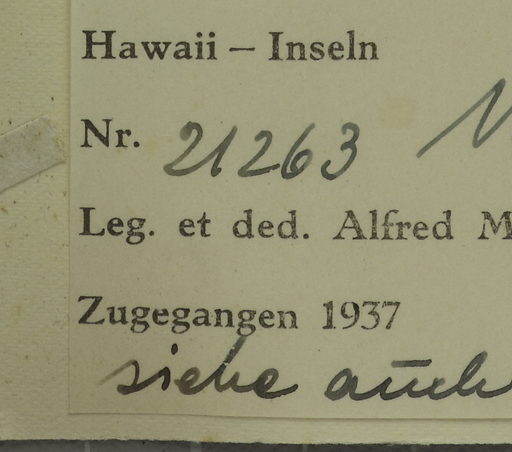 Hawaii – Inseln
Nr. 21263
Leg. et ded. Alfred M
Zugegangen 1937
siehe auch